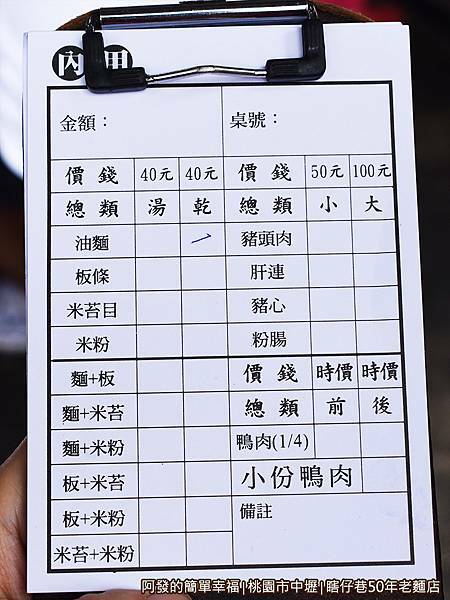 內用
金額：
桌號：
價錢 40元 40元 價錢 50元 100元
總類 湯 乾 總類 小 大
油麵 一 豬頭肉
板條 肝連
米苔目 豬心
米粉 粉腸
麵+板 價錢 時價 時價
麵+米苔 總類 前 後
麵+米粉 鴨肉(1/4)
板+米苔 小份鴨肉
板+米粉 備註
米苔+米粉
阿發的簡單幸福|桃園市中壢|瞎仔巷50年老麵店